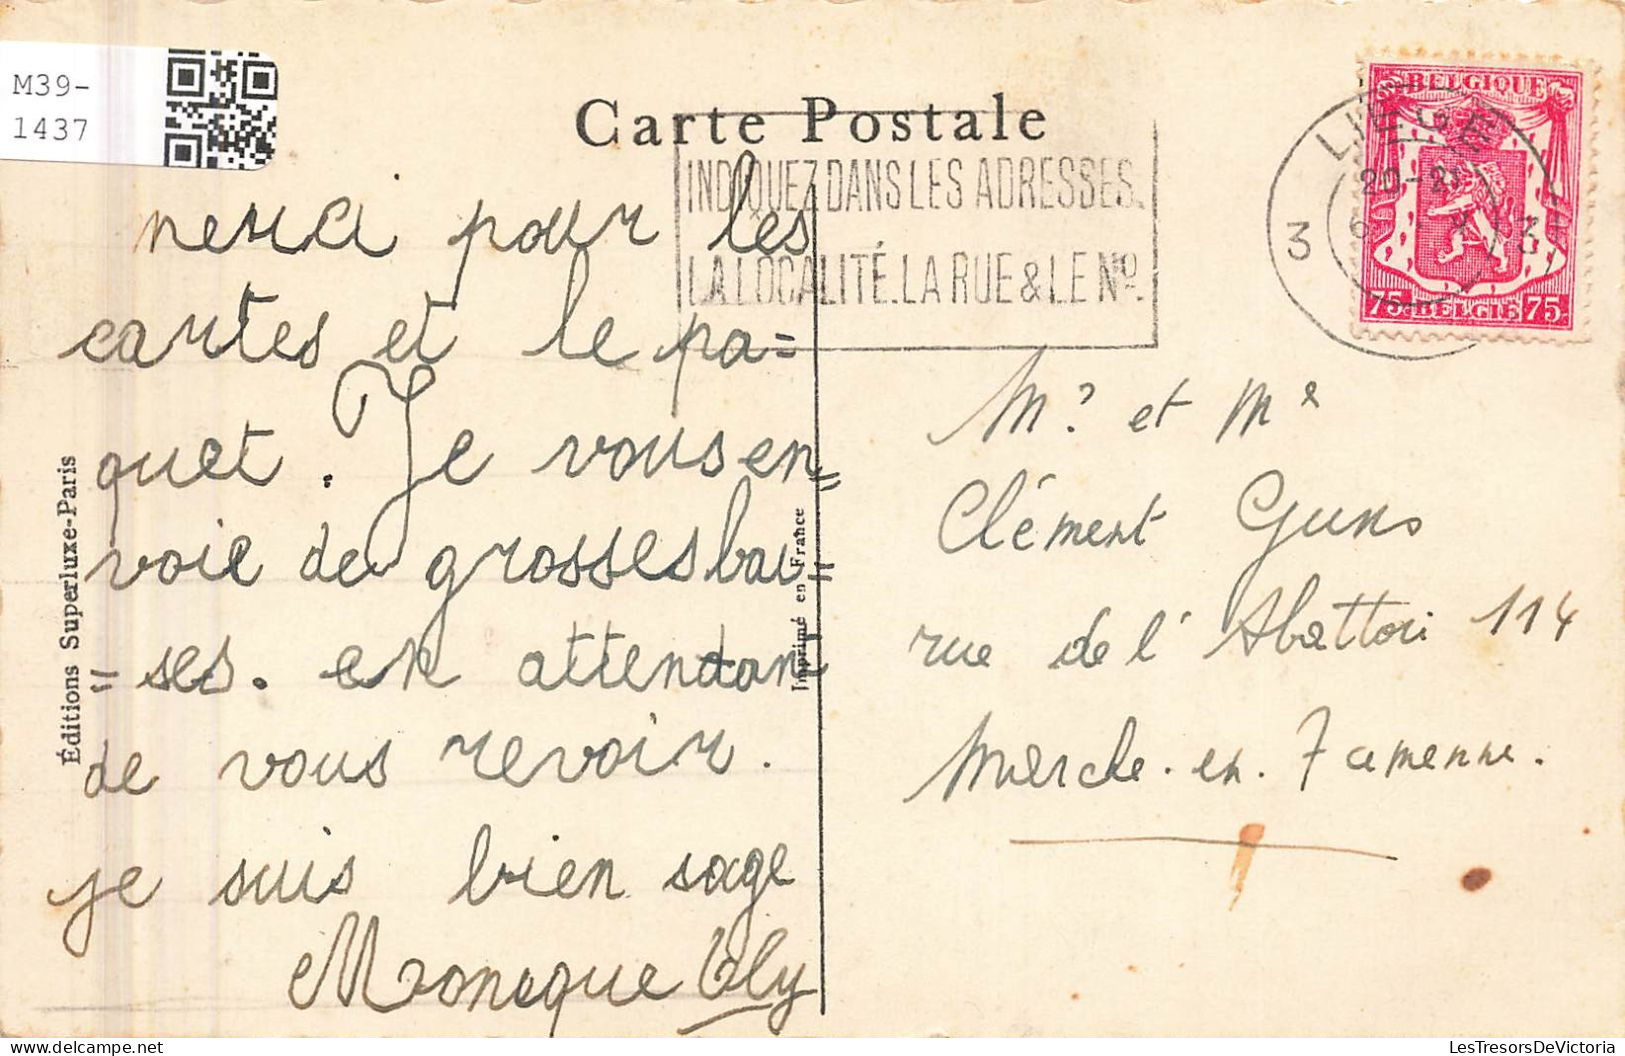 M39-
1437
Carte Postale
INDIQUEZ DANS LES ADRESSES.
LA LOCALITÉ. LA RUE & LE Nº.
BELGIQUE
75 BELGIE 75
LIEGE
20-21
3 3
merci pour les
cartes et le pa=
quet. Je vous en=
voie de grosses bai=
=ses. en attendant
de vous revoir.
je suis bien sage
Monique
Mr et Me
Clément
rue de l'Abattoi 114
Marche. en. Famenne.
Éditions Superluxe-Paris
Imprimé en France
LesTresorsDeVictoria
www.delcampe.net